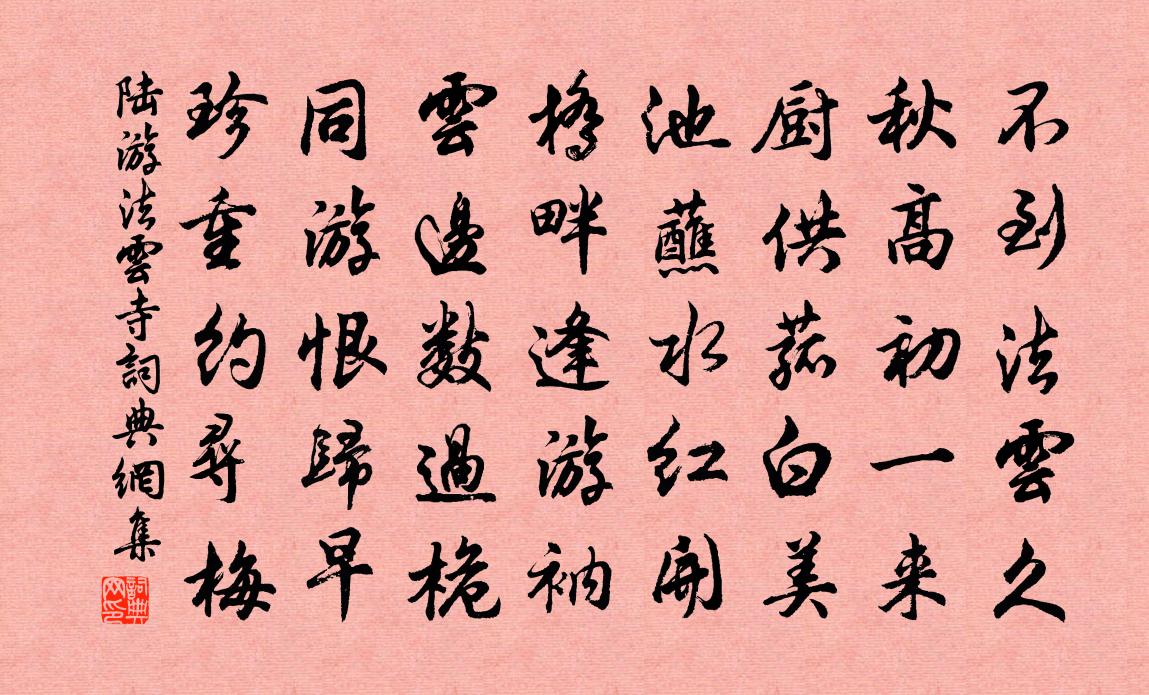 不到法雲久
秋高初一来
厨供菰白美
池蘸水红開
橋畔逢游衲
雲邊數過桅
同游恨歸早
珍重約尋梅
陸游法雲寺詞典網集
詞典网印